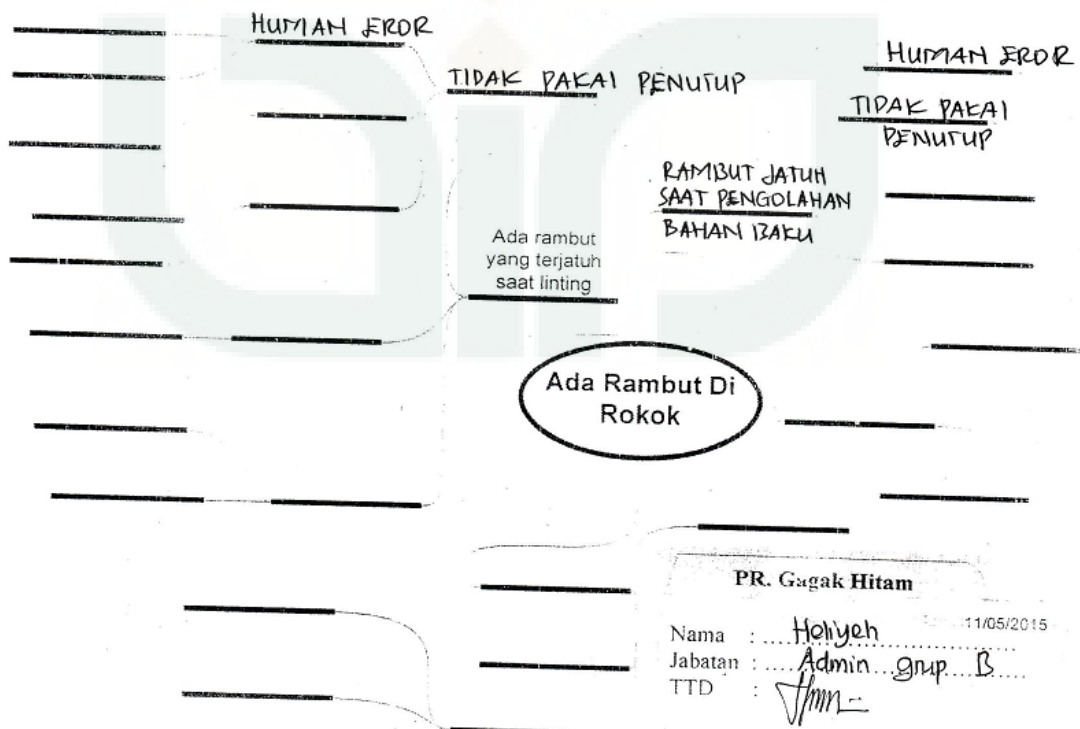 HUMAN EROR
TIDAK PAKAI PENUTUP
HUMAN EROR
TIDAK PAKAI
PENUTUP
RAMBUT JATUH
SAAT PENGOLAHAN
BAHAN BAKU
Ada rambut
yang terjatuh
saat linting
Ada Rambut Di
Rokok
PR. Gagak Hitam
11/05/2015
Nama : .... Heliyeh ....
Jabatan : .... Admin grup B ....
TTD :